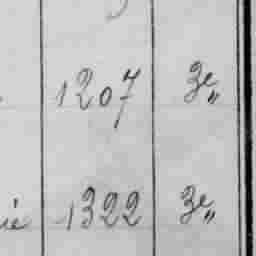 1207 3e„
ié 1322 3e„